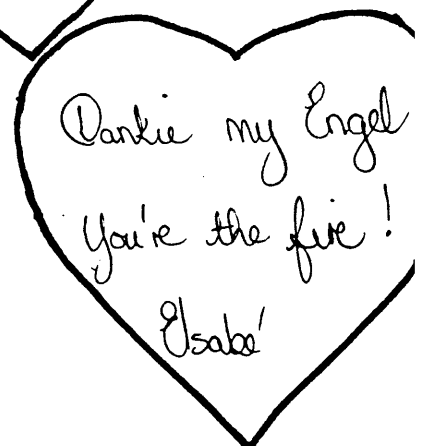 Dankie my Engel
You're the fire!
Elsabé